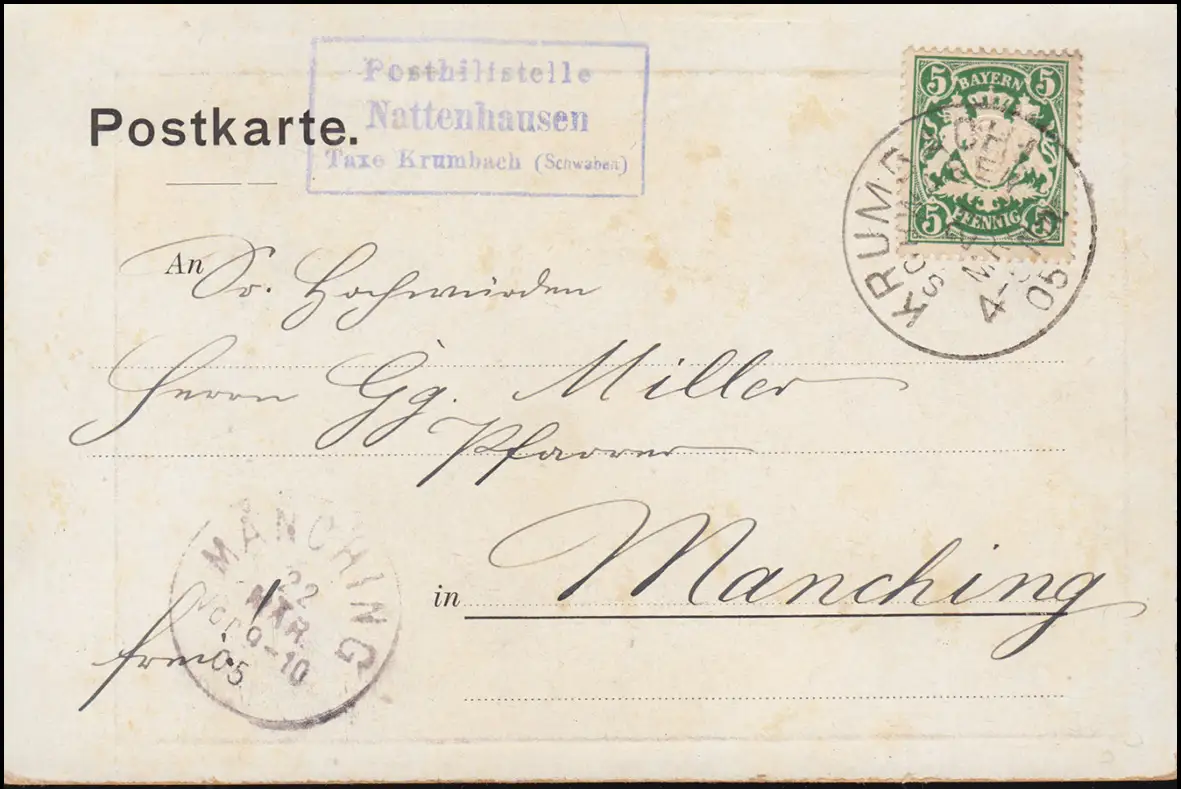 Posthilfstelle
Nattenhausen
Taxe Krumbach (Schwaben)
Postkarte.
5 BAYERN 5
5 PFENNIG 5
KRUMBACH
MRZ
4
05
An Sr. Hochwürden
Herrn Gg. Miller
Pfarrer
in Manching
MANCHING
22
MÄR.
Vor 9-10
05
frei!